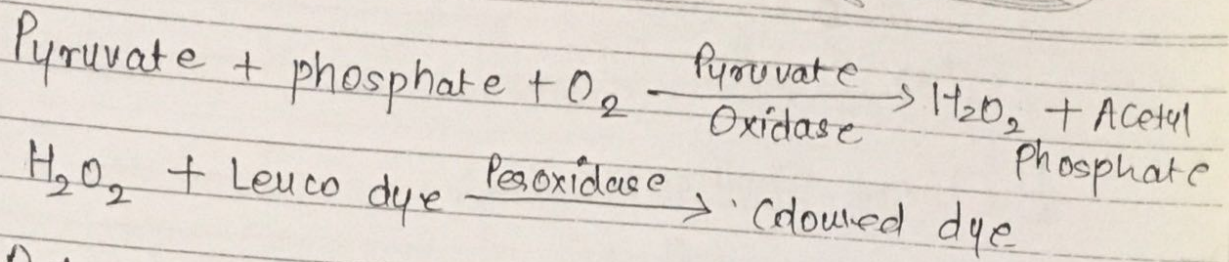 Pyruvate + phosphate + O₂ —Pyruvate Oxidase→ H₂O₂ + Acetyl phosphate
H₂O₂ + Leuco dye —Peroxidase→ Coloured dye